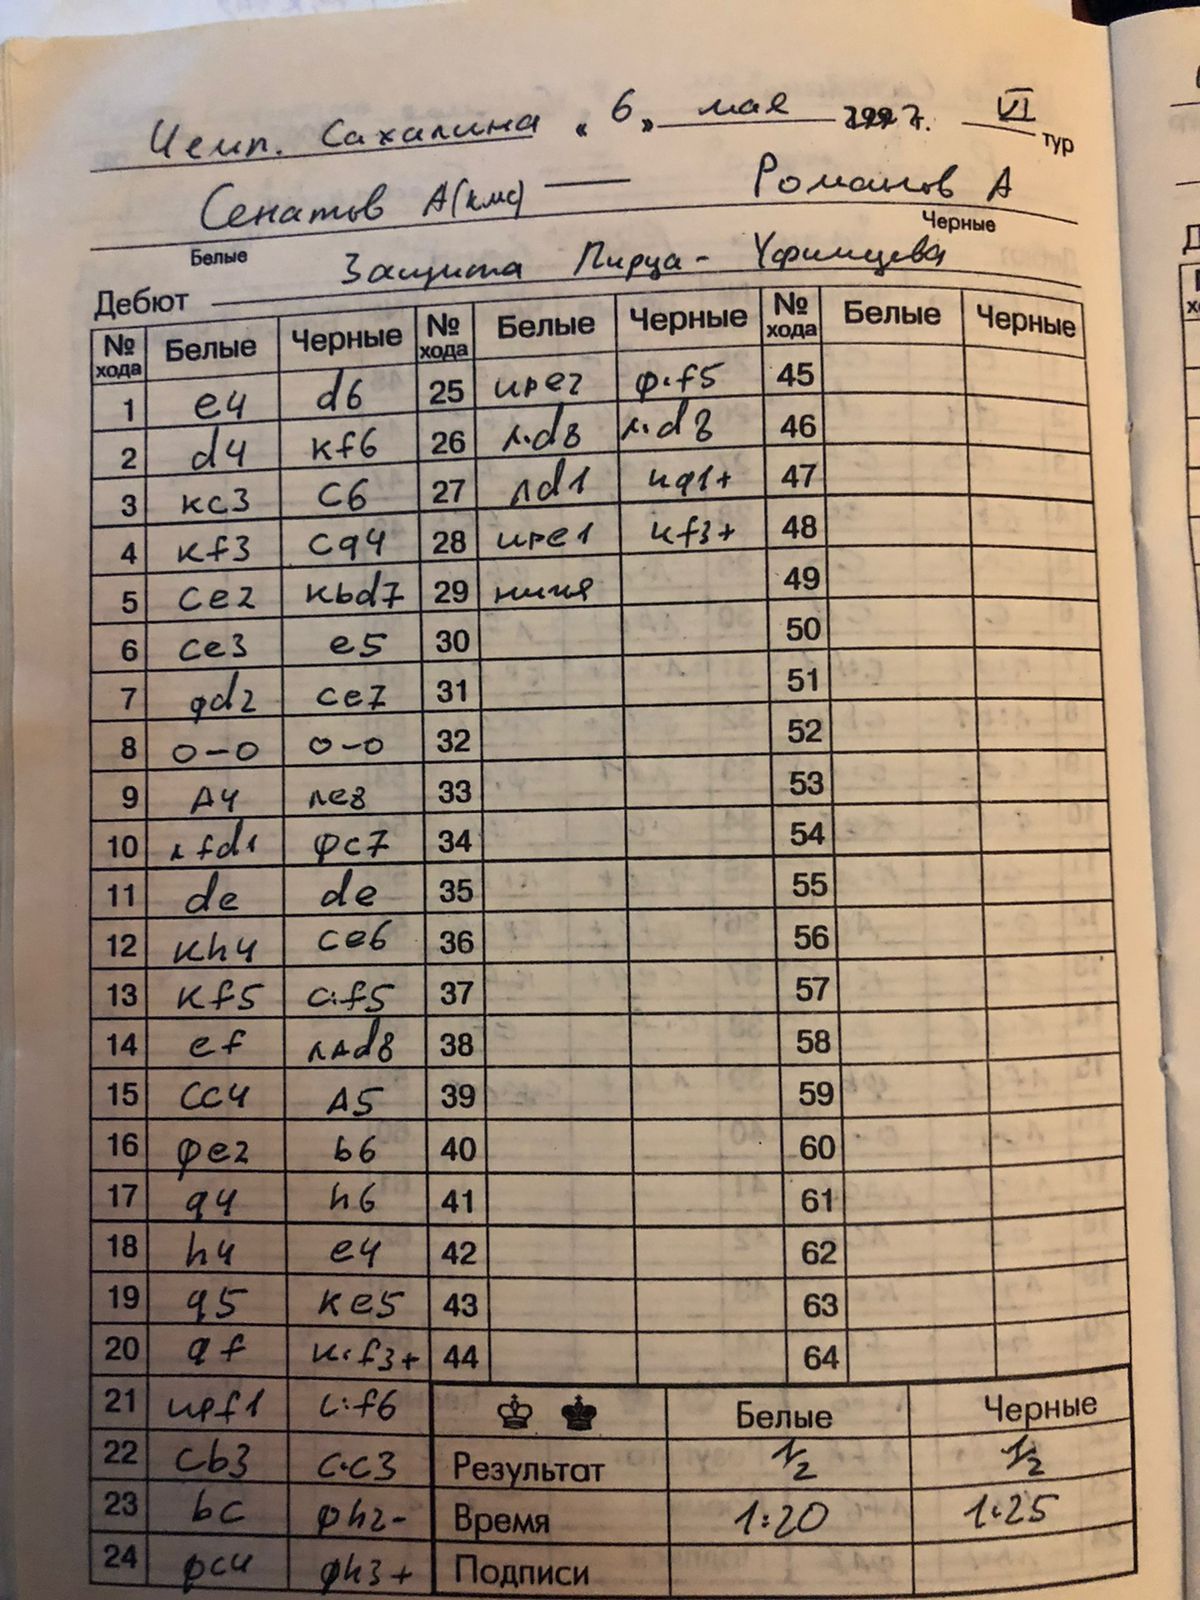 Чемп. Сахалина « 6 » мая 1997г. VI
тур
Сенатов А(кмс) — Романов А
Белые Черные
Дебют Защита Пирца - Уфимцева
№ хода Белые Черные № хода Белые Черные № хода Белые Черные
1 e4 d6 25 крe2 ф:f5 45
2 d4 кf6 26 л:d8 л:d8 46
3 кc3 c6 27 лd1 кg1+ 47
4 кf3 cg4 28 крe1 кf3+ 48
5 ce2 кbd7 29 ничья 49
6 ce3 e5 30 50
7 фd2 ce7 31 51
8 0-0 0-0 32 52
9 A4 лe8 33 53
10 лfd1 фc7 34 54
11 de de 35 55
12 кh4 ce6 36 56
13 кf5 c:f5 37 57
14 ef лAd8 38 58
15 cc4 A5 39 59
16 фe2 b6 40 60
17 g4 h6 41 61
18 h4 e4 42 62
19 g5 кe5 43 63
20 gf к:f3+ 44 64
21 крf1 c:f6 Белые Черные
22 cb3 c:c3 Результат 1/2 1/2
23 bc фh2- Время 1:20 1:25
24 фc4 фh3+ Подписи